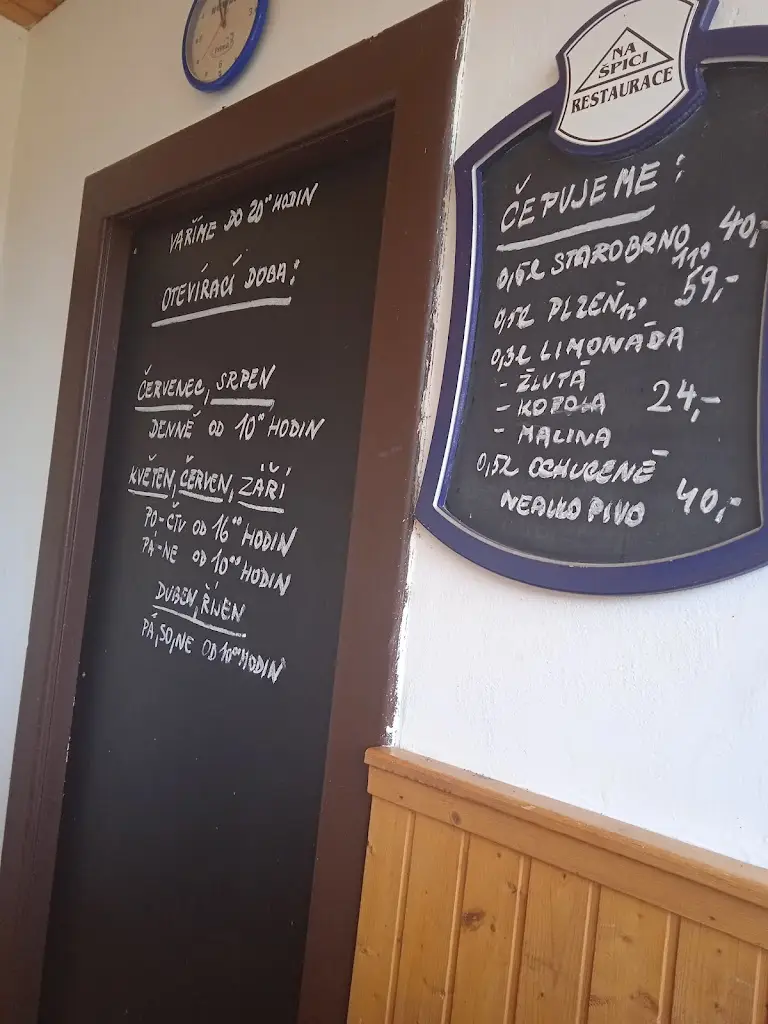 VAŘÍME DO 20°° HODIN
OTEVÍRACÍ DOBA:
ČERVENEC, SRPEN
DENNĚ OD 10°° HODIN
KVĚTEN, ČERVEN, ZÁŘÍ
PO-ČTV OD 16°° HODIN
PÁ-NE OD 10°° HODIN
DUBEN, ŘÍJEN
PÁ, SO, NE OD 10°° HODIN
NA
ŠPICI
RESTAURACE
ČEPUJEME:
0,5l STAROBRNO 11° 40,-
0,5l PLZEŇ 12° 59,-
0,3l LIMONÁDA
- ŽLUTÁ
- KOFOLA 24,-
- MALINA
0,5l OCHUCENÉ
NEALKO PIVO 40,-